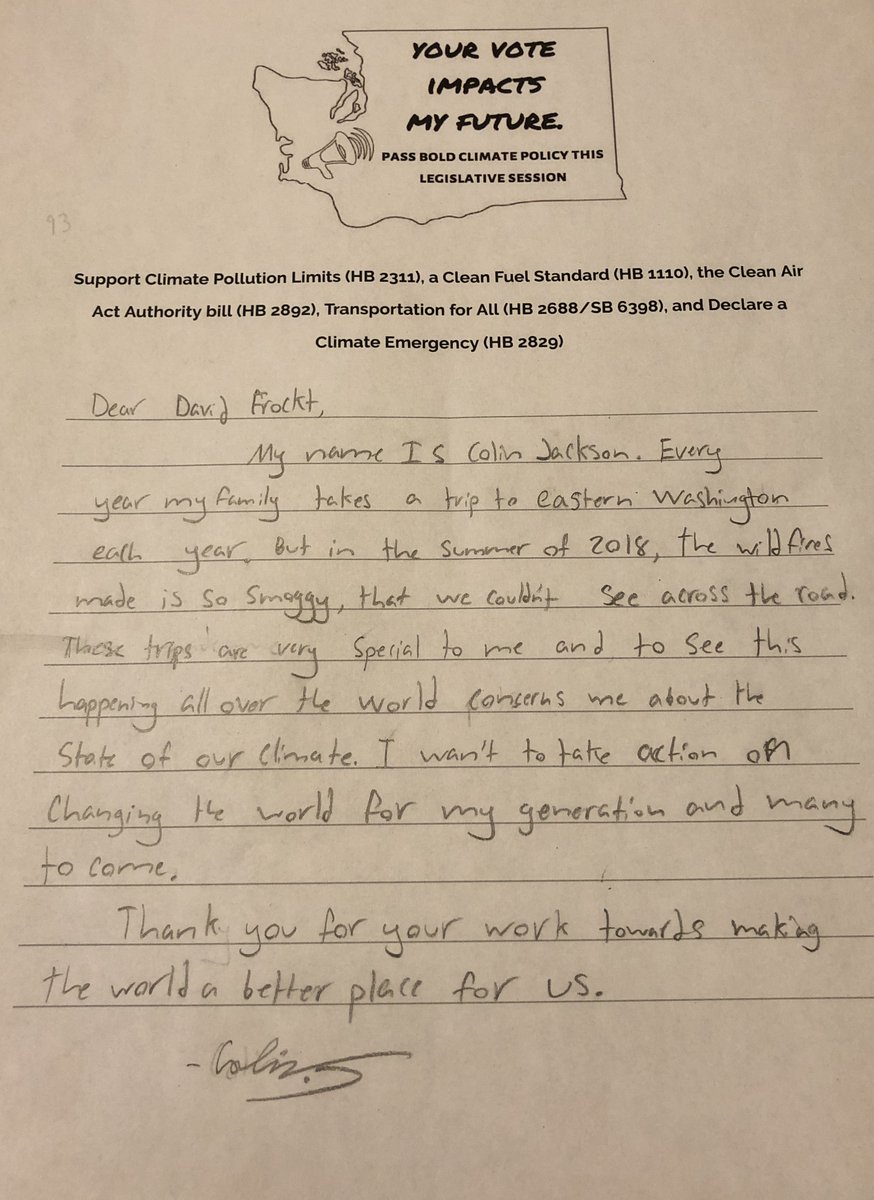 YOUR VOTE
IMPACTS
MY FUTURE.
PASS BOLD CLIMATE POLICY THIS
LEGISLATIVE SESSION
93
Support Climate Pollution Limits (HB 2311), a Clean Fuel Standard (HB 1110), the Clean Air
Act Authority bill (HB 2892), Transportation for All (HB 2688/SB 6398), and Declare a
Climate Emergency (HB 2829)
Dear David Frockt,
My name Is Colin Jackson. Every
year my family takes a trip to eastern Washington
each year. But in the summer of 2018, the wildfires
made is so smoggy, that we couldn't see across the road.
These trips are very special to me and to see this
happening all over the world concerns me about the
State of our climate. I wan't to take action on
Changing the world for my generation and many
to come.
Thank you for your work towards making
the world a better place for us.
- Colin.J